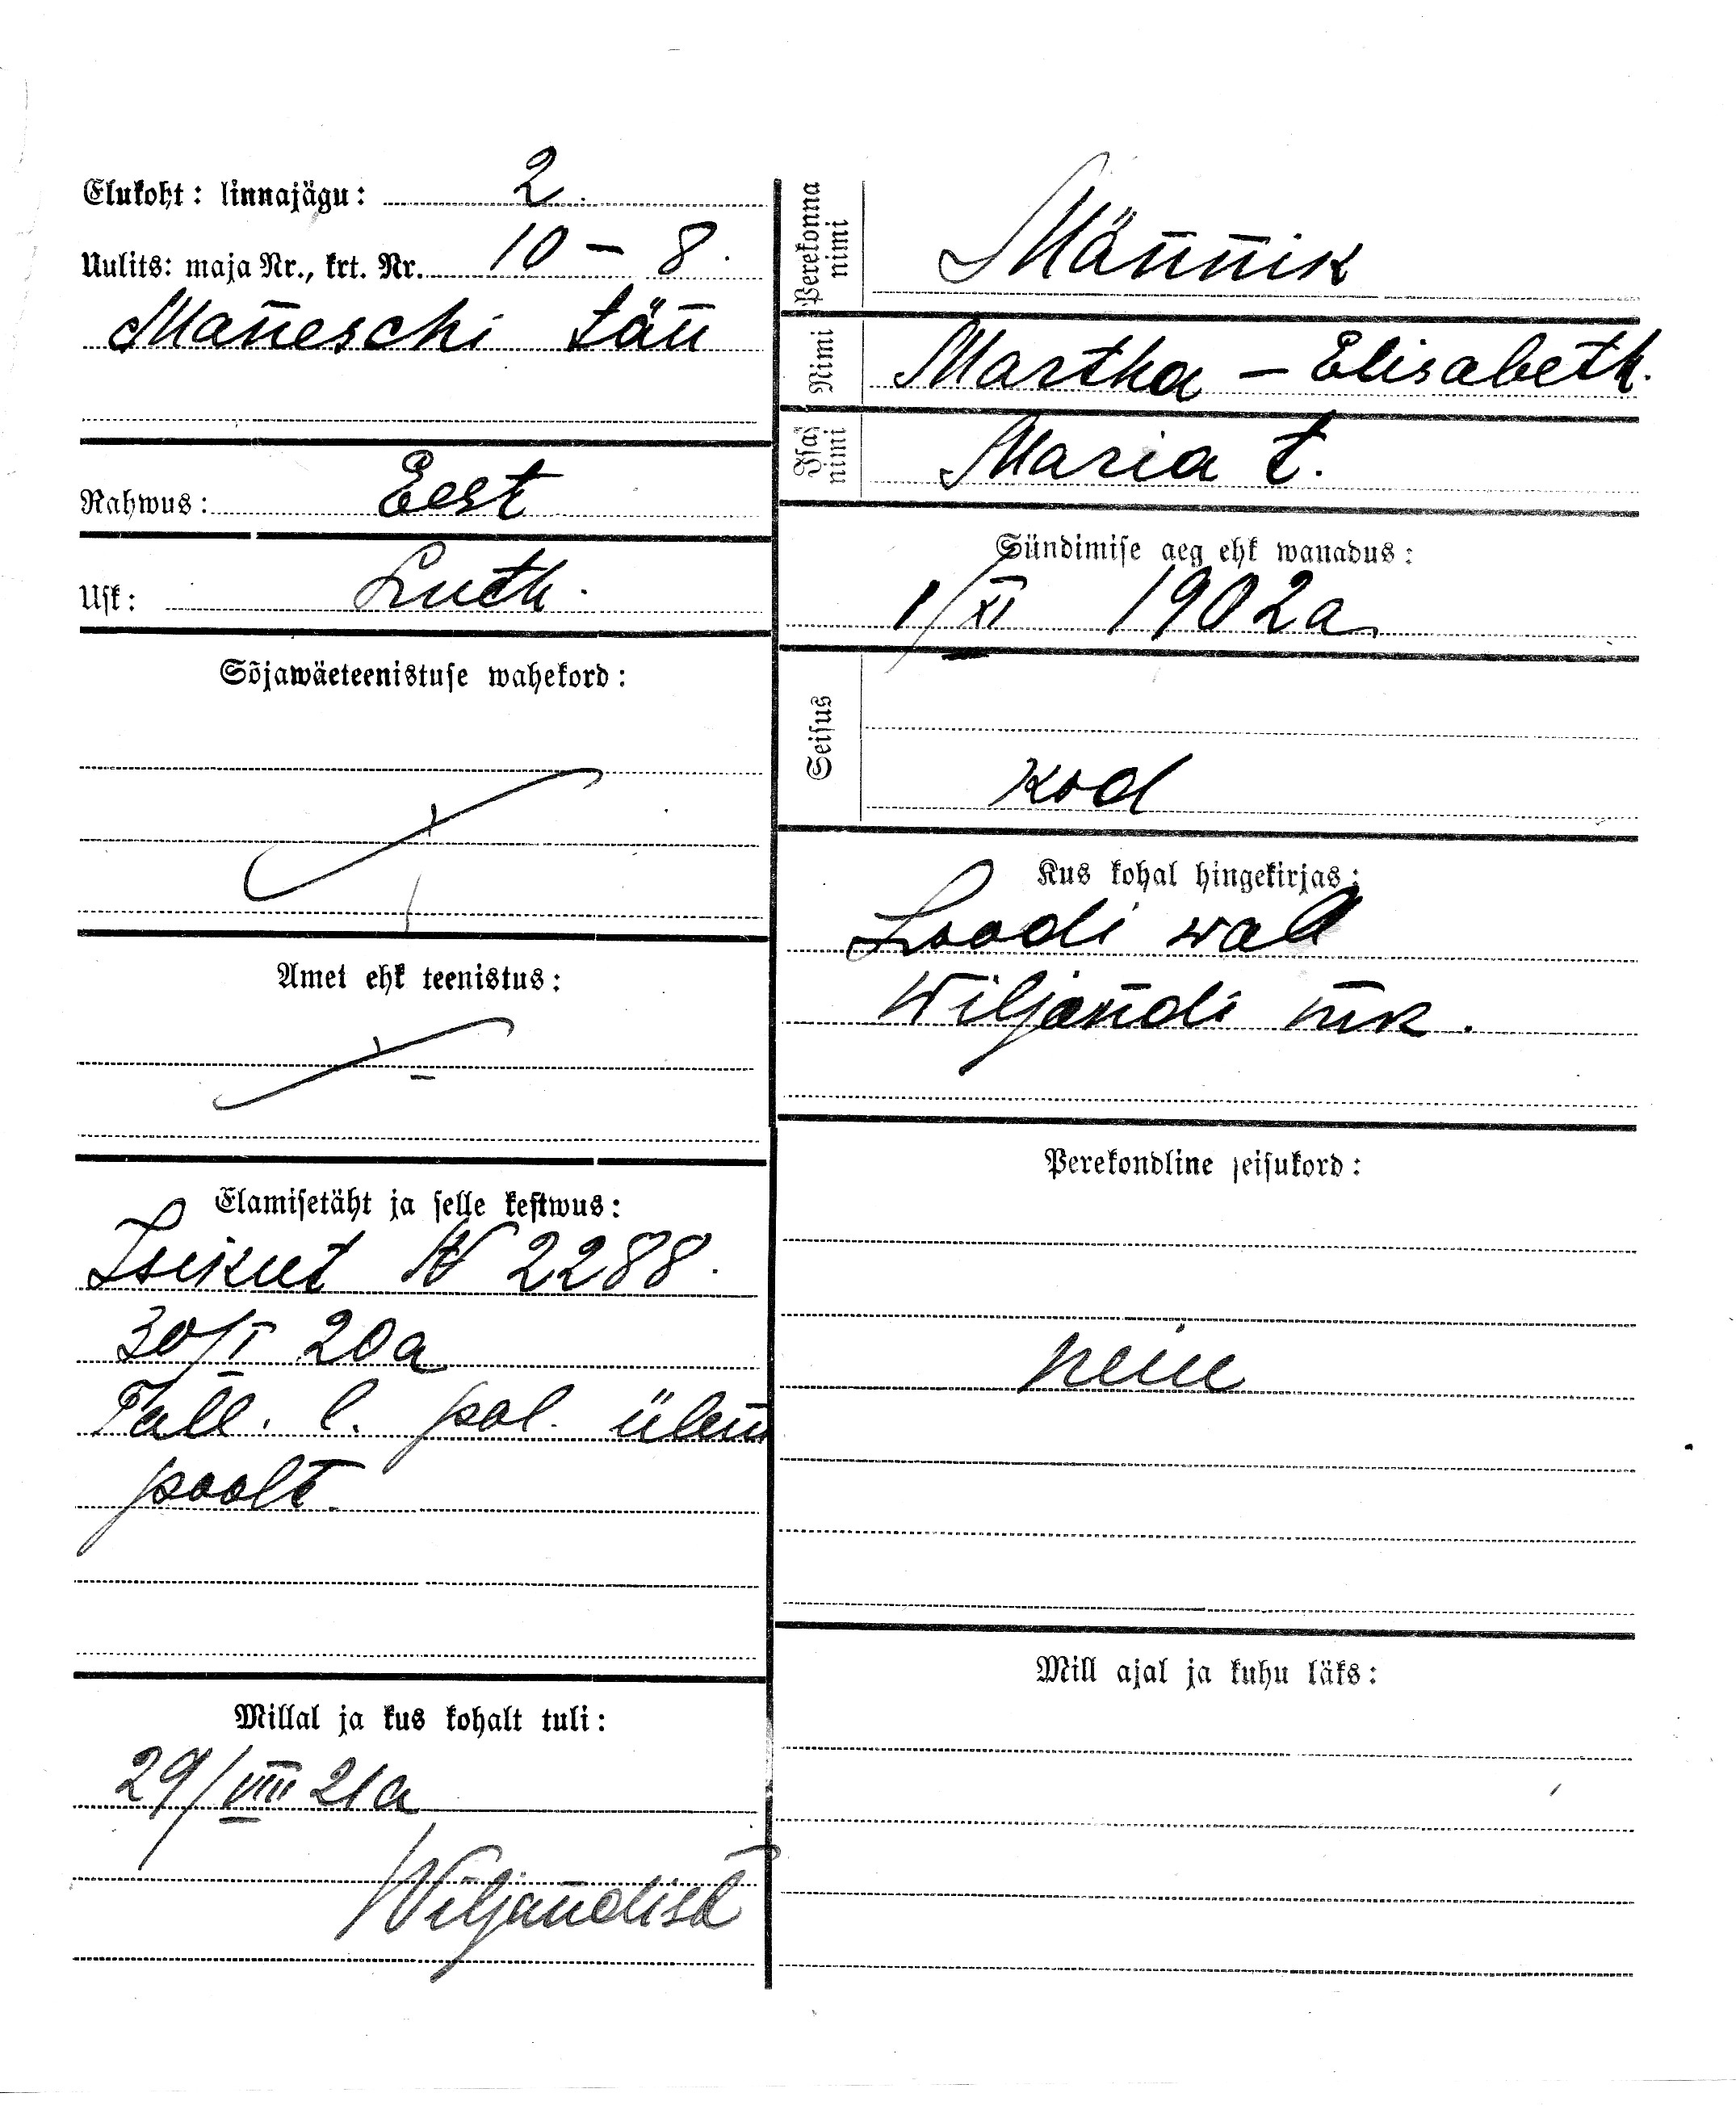 Elukoht: linnajägu: 2.
Uulits: maja Nr., krt. Nr. 10 – 8.
Maneschi tän
Rahwus: Eest
Usk: Luth.
Sõjawäeteenistuse wahekord:
Amet ehk teenistus:
Elamisetäht ja selle kestwus:
Isikut № 2288.
30/I 20a
Tall. l. pol. ülem
poolt.
Millal ja kus kohalt tuli:
29/VIII 21a
Wiljandist
Perekonna nimi
Männik
Nimi
Martha – Elisabeth.
Isa nimi
Maria t.
Sündimise aeg ehk wanadus:
1/XI 1902a
Seisus
kod
Kus kohal hingekirjas:
Loodi wall
Wiljandi mk.
Perekondline seisukord:
neiu
Mill ajal ja kuhu läks: